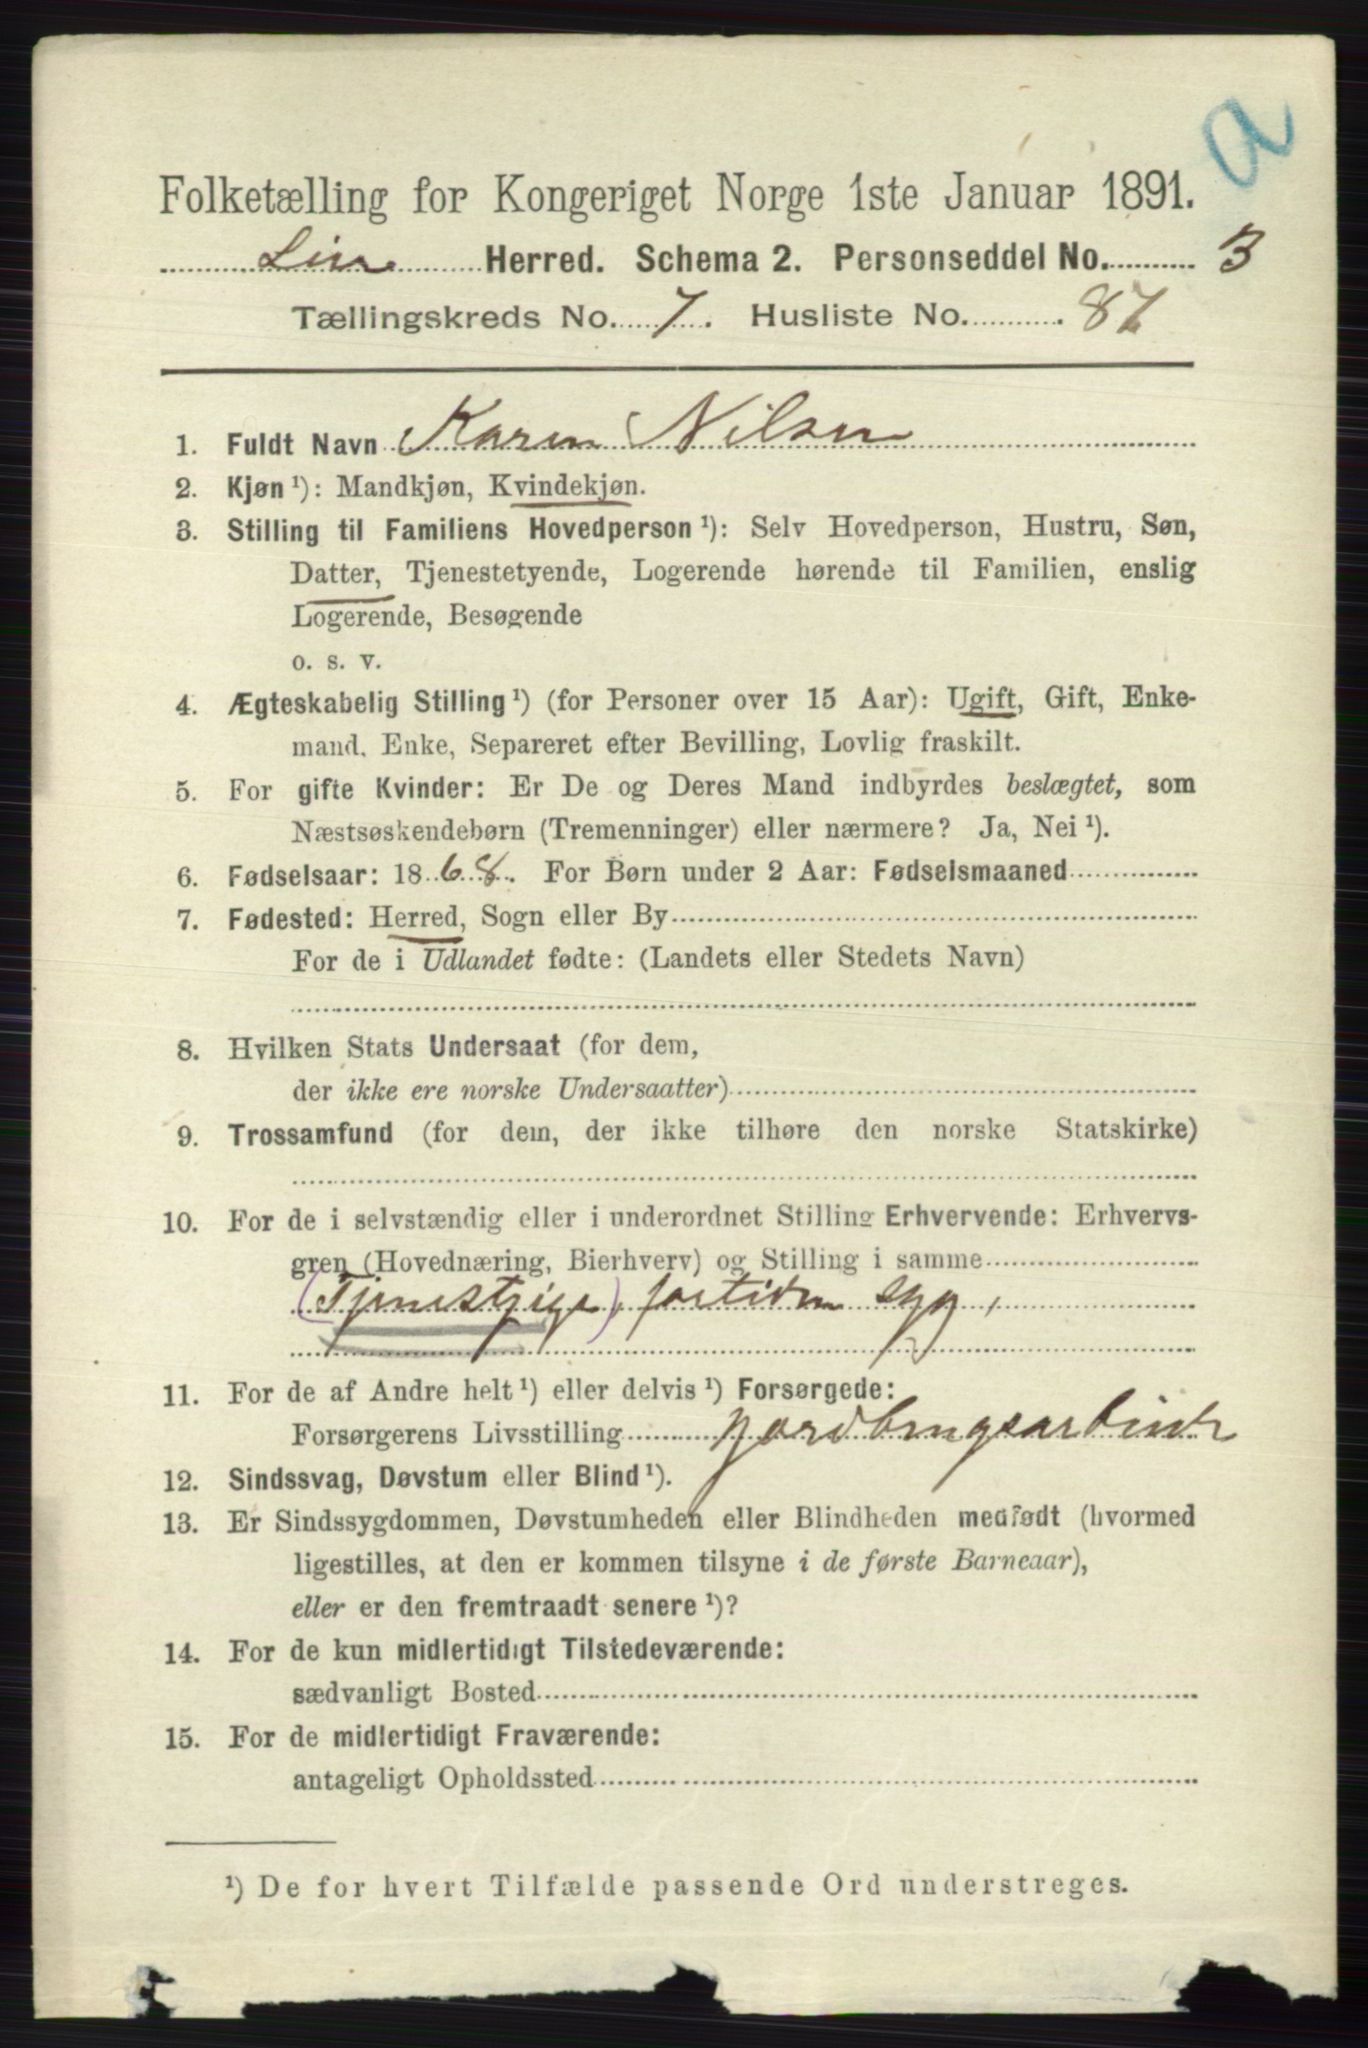 a
Folketælling for Kongeriget Norge 1ste Januar 1891.
Lier Herred. Schema 2. Personseddel No. 3
Tællingskreds No. 7. Husliste No. 87
1. Fuldt Navn Karen Nilsen
2. Kjøn ¹): Mandkjøn, Kvindekjøn.
3. Stilling til Familiens Hovedperson ¹): Selv Hovedperson, Hustru, Søn,
Datter, Tjenestetyende, Logerende hørende til Familien, enslig
Logerende, Besøgende
o. s. v.
4. Ægteskabelig Stilling ¹) (for Personer over 15 Aar): Ugift, Gift, Enke-
mand, Enke, Separeret efter Bevilling, Lovlig fraskilt.
5. For gifte Kvinder: Er De og Deres Mand indbyrdes beslægtet, som
Næstsøskendebørn (Tremenninger) eller nærmere? Ja, Nei ¹).
6. Fødselsaar: 1868. For Børn under 2 Aar: Fødselsmaaned
7. Fødested: Herred, Sogn eller By
For de i Udlandet fødte: (Landets eller Stedets Navn)
8. Hvilken Stats Undersaat (for dem,
der ikke ere norske Undersaatter)
9. Trossamfund (for dem, der ikke tilhøre den norske Statskirke)
10. For de i selvstændig eller i underordnet Stilling Erhvervende: Erhvervs-
gren (Hovednæring, Bierhverv) og Stilling i samme
(Tjenestpige), fortiden syg,
11. For de af Andre helt ¹) eller delvis ¹) Forsørgede:
Forsørgerens Livsstilling jordbrugsarbeider
12. Sindssvag, Døvstum eller Blind ¹).
13. Er Sindssygdommen, Døvstumheden eller Blindheden medfødt (hvormed
ligestilles, at den er kommen tilsyne i de første Barneaar),
eller er den fremtraadt senere ¹)?
14. For de kun midlertidigt Tilstedeværende:
sædvanligt Bosted
15. For de midlertidigt Fraværende:
antageligt Opholdssted
¹) De for hvert Tilfælde passende Ord understreges.